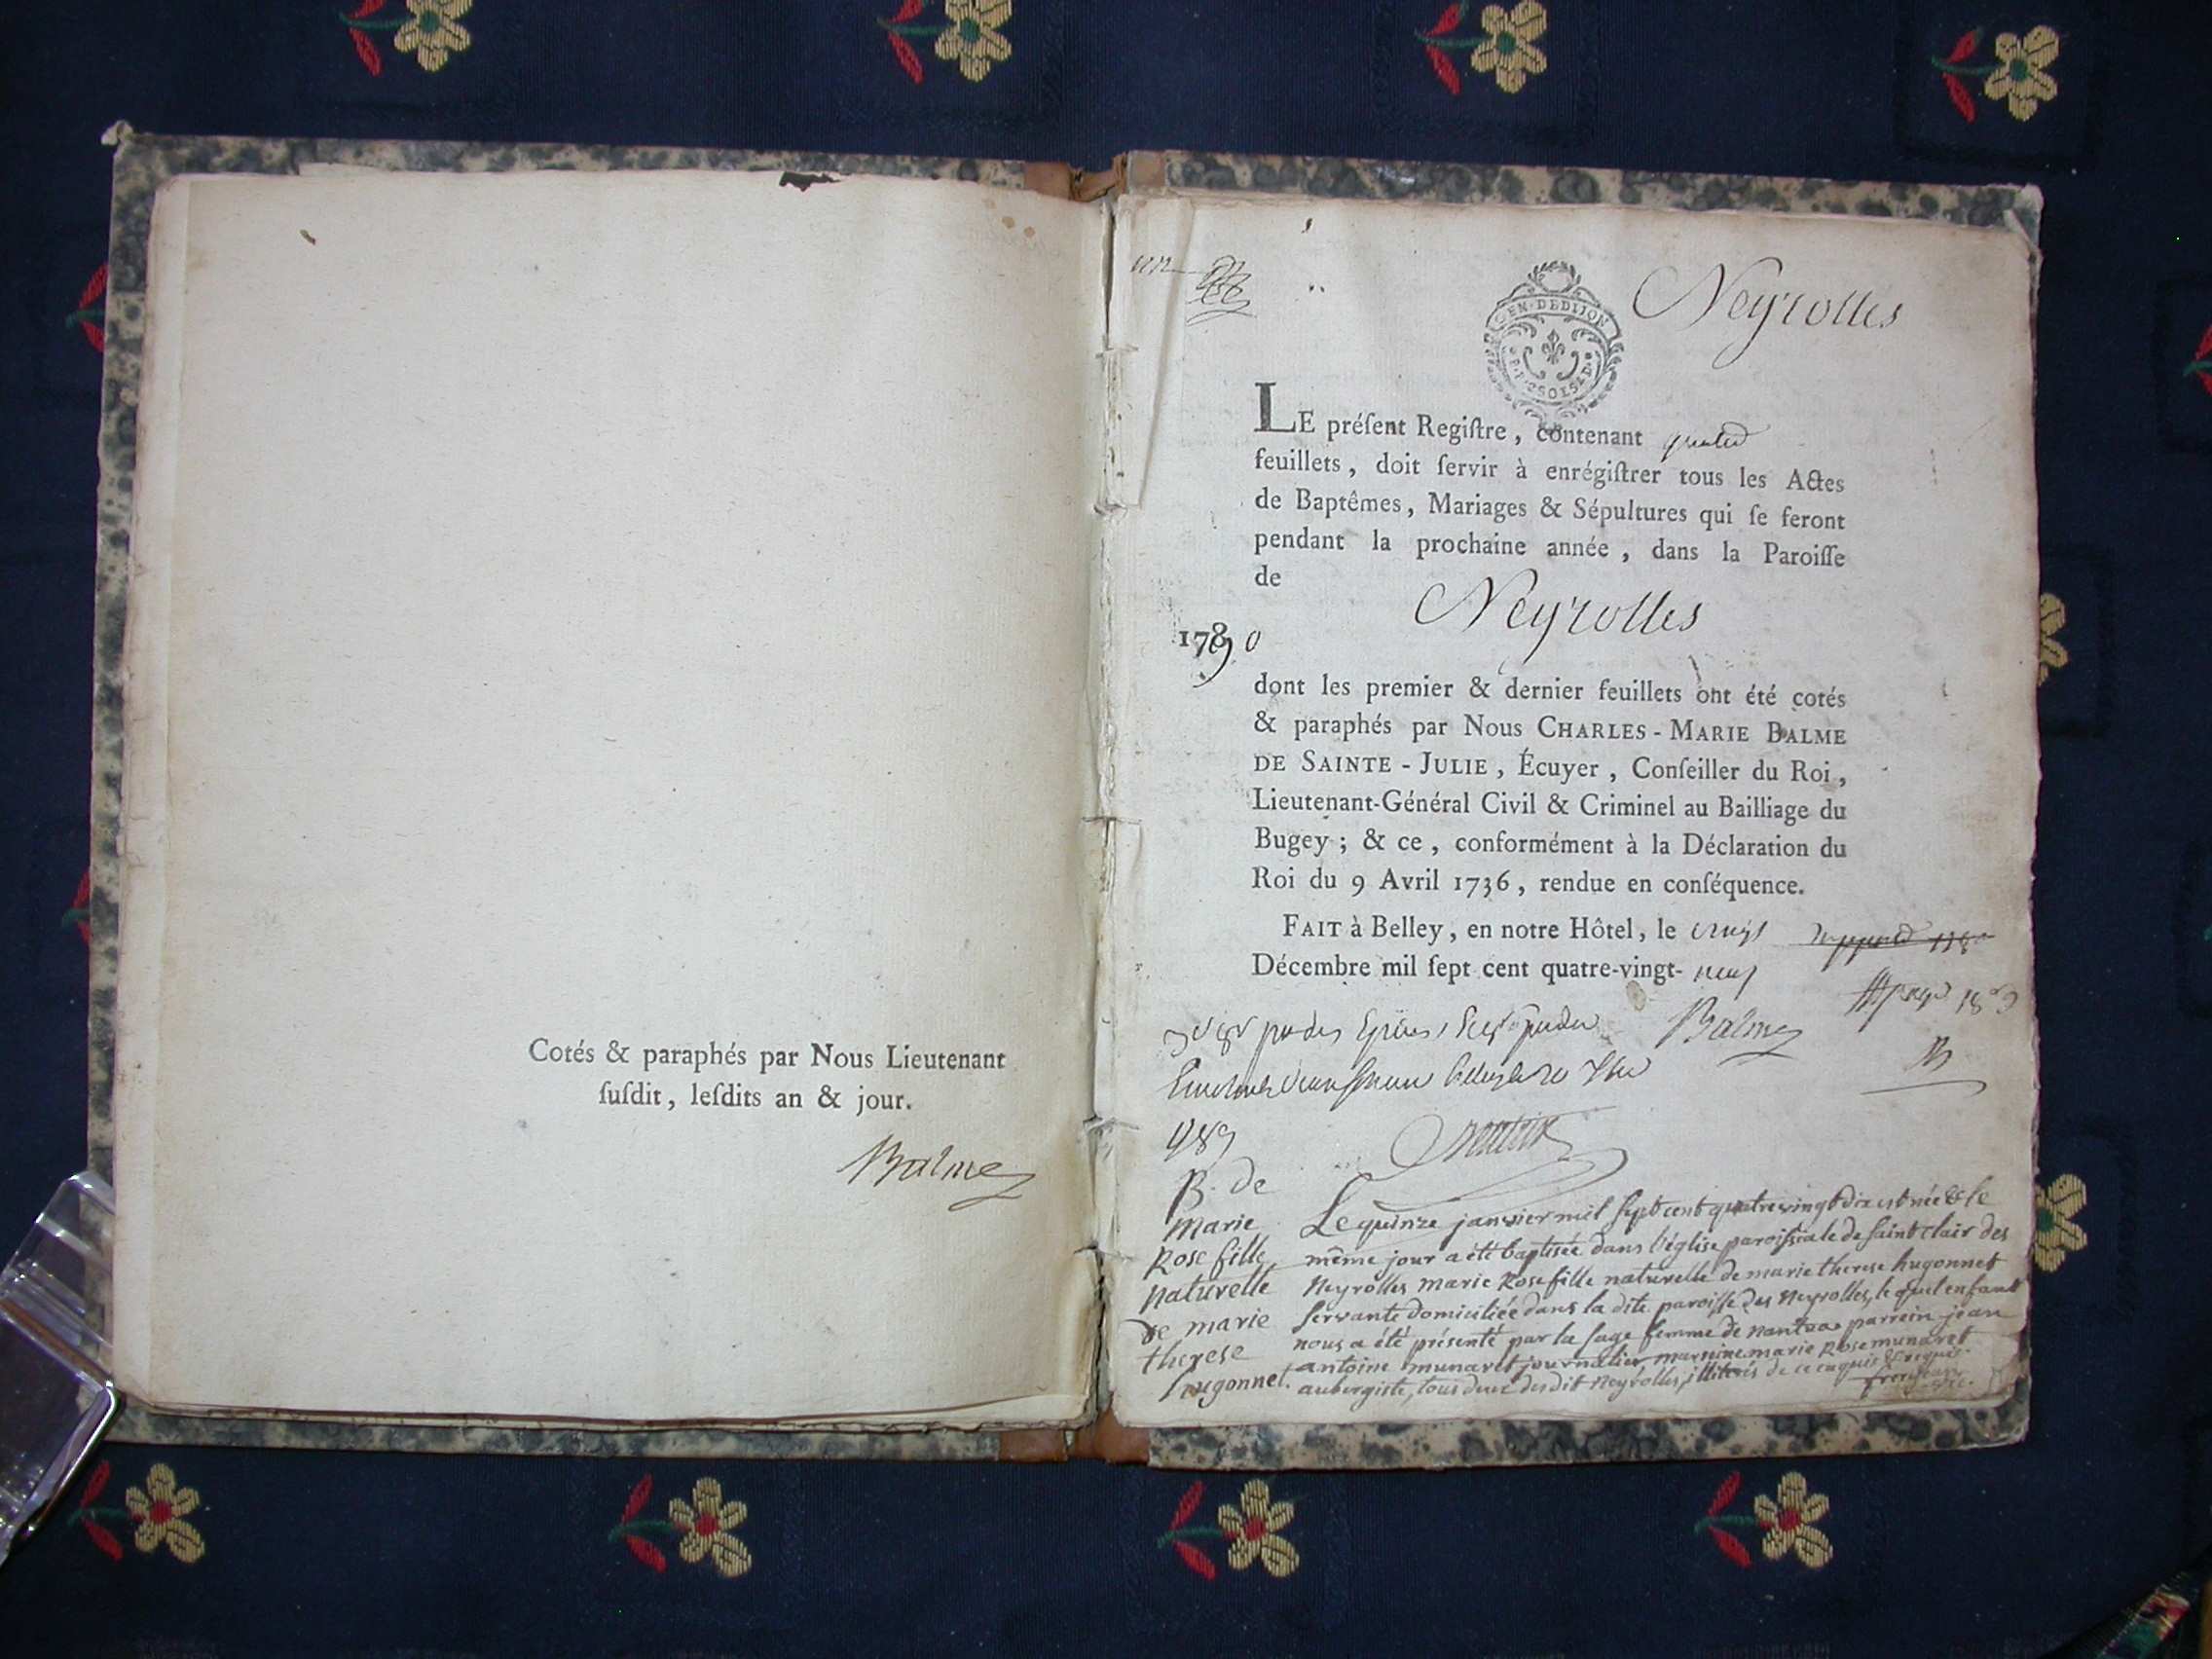 Cotés & paraphés par Nous Lieutenant
ſuſdit, leſdits an & jour.
Balme
un
Neyrolles
GEN·DEDIJON
LE préſent Regiſtre, contenant
feuillets, doit ſervir à enrégiſtrer tous les Actes
de Baptêmes, Mariages & Sépultures qui ſe feront
pendant la prochaine année, dans la Paroiſſe
de
Neyrolles
1790
dont les premier & dernier feuillets ont été cotés
& paraphés par Nous CHARLES-MARIE BALME
DE SAINTE-JULIE, Écuyer, Conſeiller du Roi,
Lieutenant-Général Civil & Criminel au Bailliage du
Bugey; & ce, conformément à la Déclaration du
Roi du 9 Avril 1736, rendue en conſéquence.
FAIT à Belley, en notre Hôtel, le vingt
Décembre mil ſept cent quatre-vingt-neuf
Balme
B. de
marie
Rose fille
naturelle
de marie
therese
hugonnet.
Le quinze janvier mil sept cent quatre vingt dix est née & le
même jour a été baptisée dans l'église paroissiale de saint clair des
Neyrolles marie Rose fille naturelle de marie therese hugonnet
servante domiciliée dans la dite paroisse des Neyrolles, le quel enfant
nous a été présenté par la sage femme de nantua parrein jean
antoine munaret journalier marreine marie Rose munaret
aubergiste, tous deux desdit Neyrolles, illiterés de ce enquis & requis.